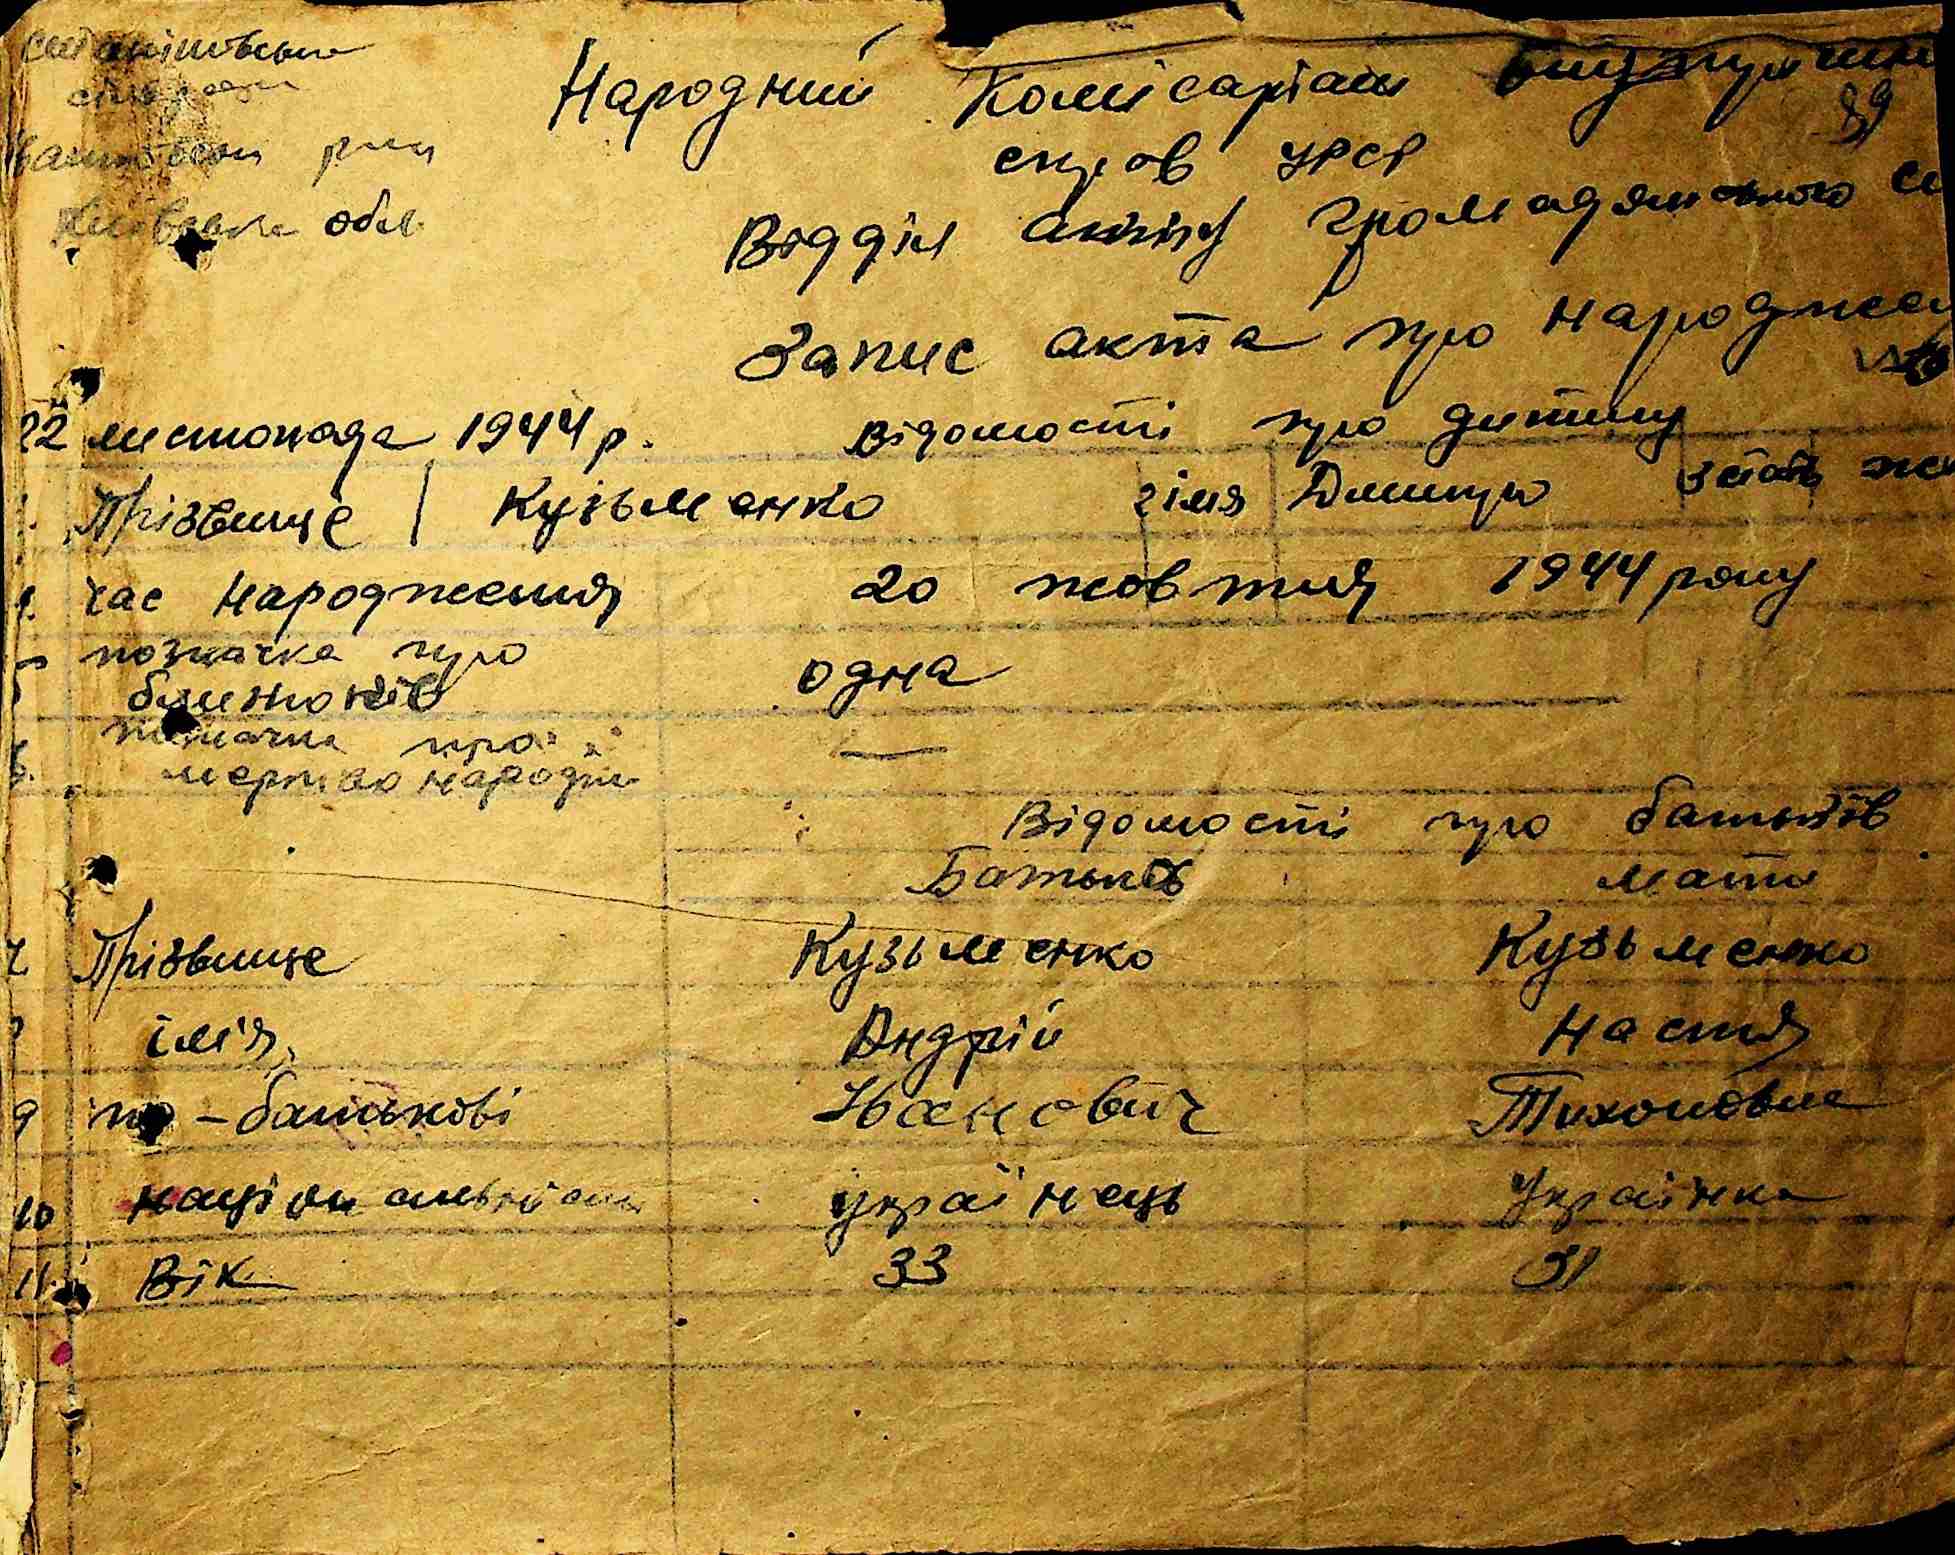 обл.
Народний Комісаріат внутрішні
89
справ УРСР
Відділ актів громадянського с
Запис акта про народжен
22 листопада 1944 р. Відомості про дитину
Прізвище Кузьменко 2 імя Дмитро 3 стать
час народження 20 жовтня 1944 року
позначка про
близнюків одна
позначка про
мертво народж
Відомості про батьків
Батьків мати
7 Прізвище Кузьменко Кузьменко
ім'я Андрій Настя
9 по-батькові Иванович Тихоновна
10 національність українець Українка
11. Вік 33 31